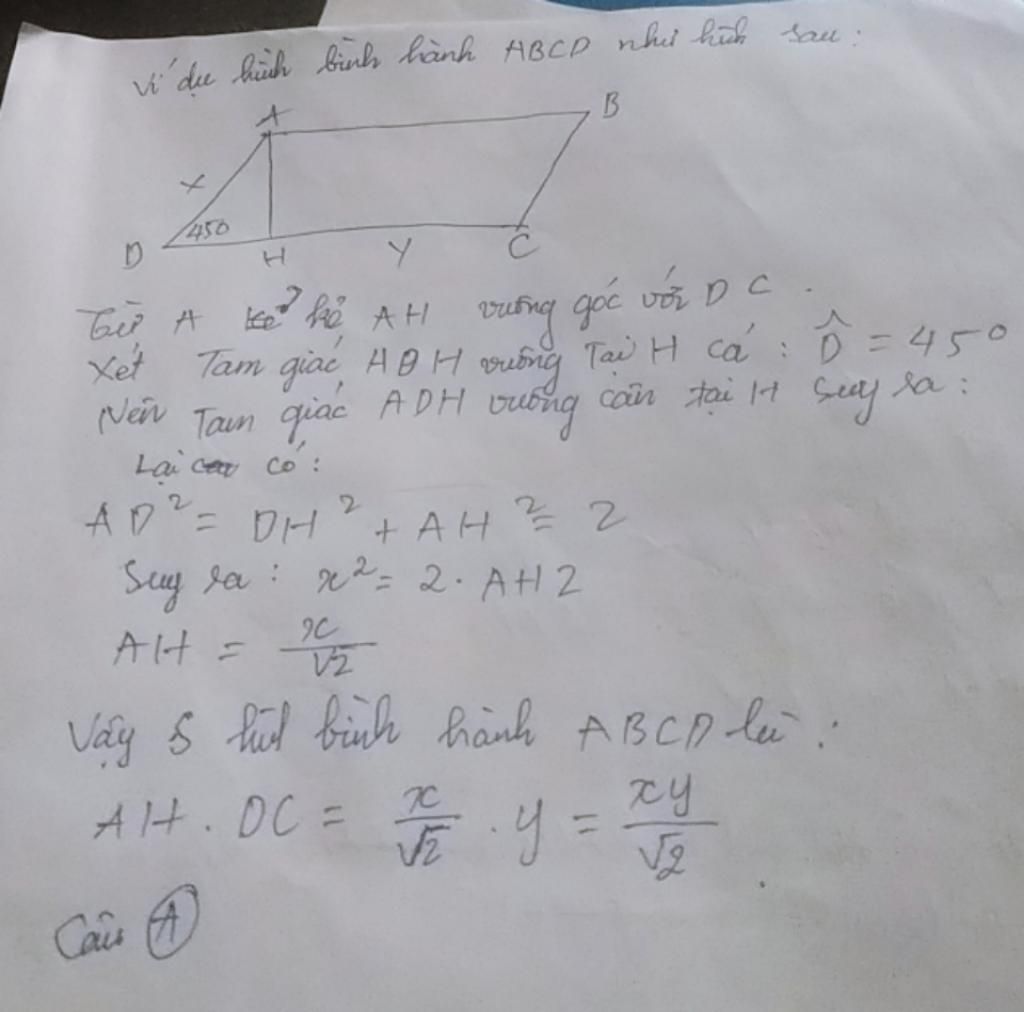 Ví dụ hình bình hành ABCD như hình sau:
A
B
x
450
D
H
Y
C
Từ A kẻ AH vuông góc với DC.
Xét Tam giác ADH vuông Tại H có: D̂ = 45°
Nên Tam giác ADH vuông cân tại H Suy ra:
Lại có:
AD² = DH² + AH² = 2
Suy ra: x² = 2. AH2
AH = x/√2
Vậy S hình bình hành ABCD là:
AH. DC = x/√2 . y = xy/√2
Câu A